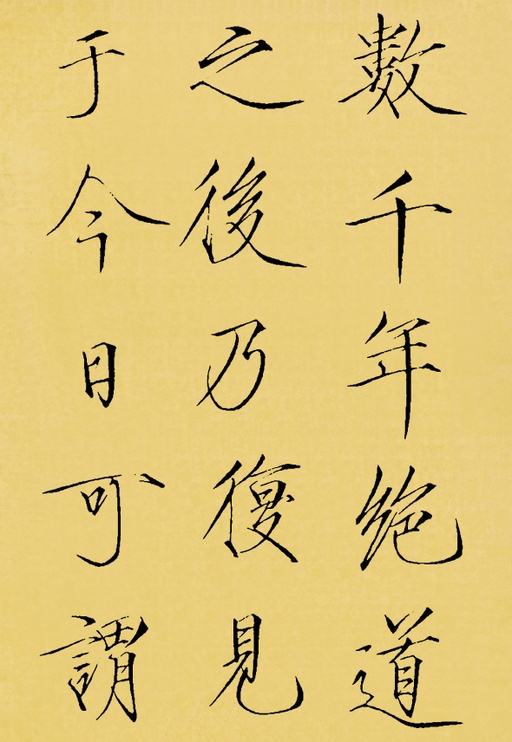 數千年絶道
之後乃復見
于今日可謂